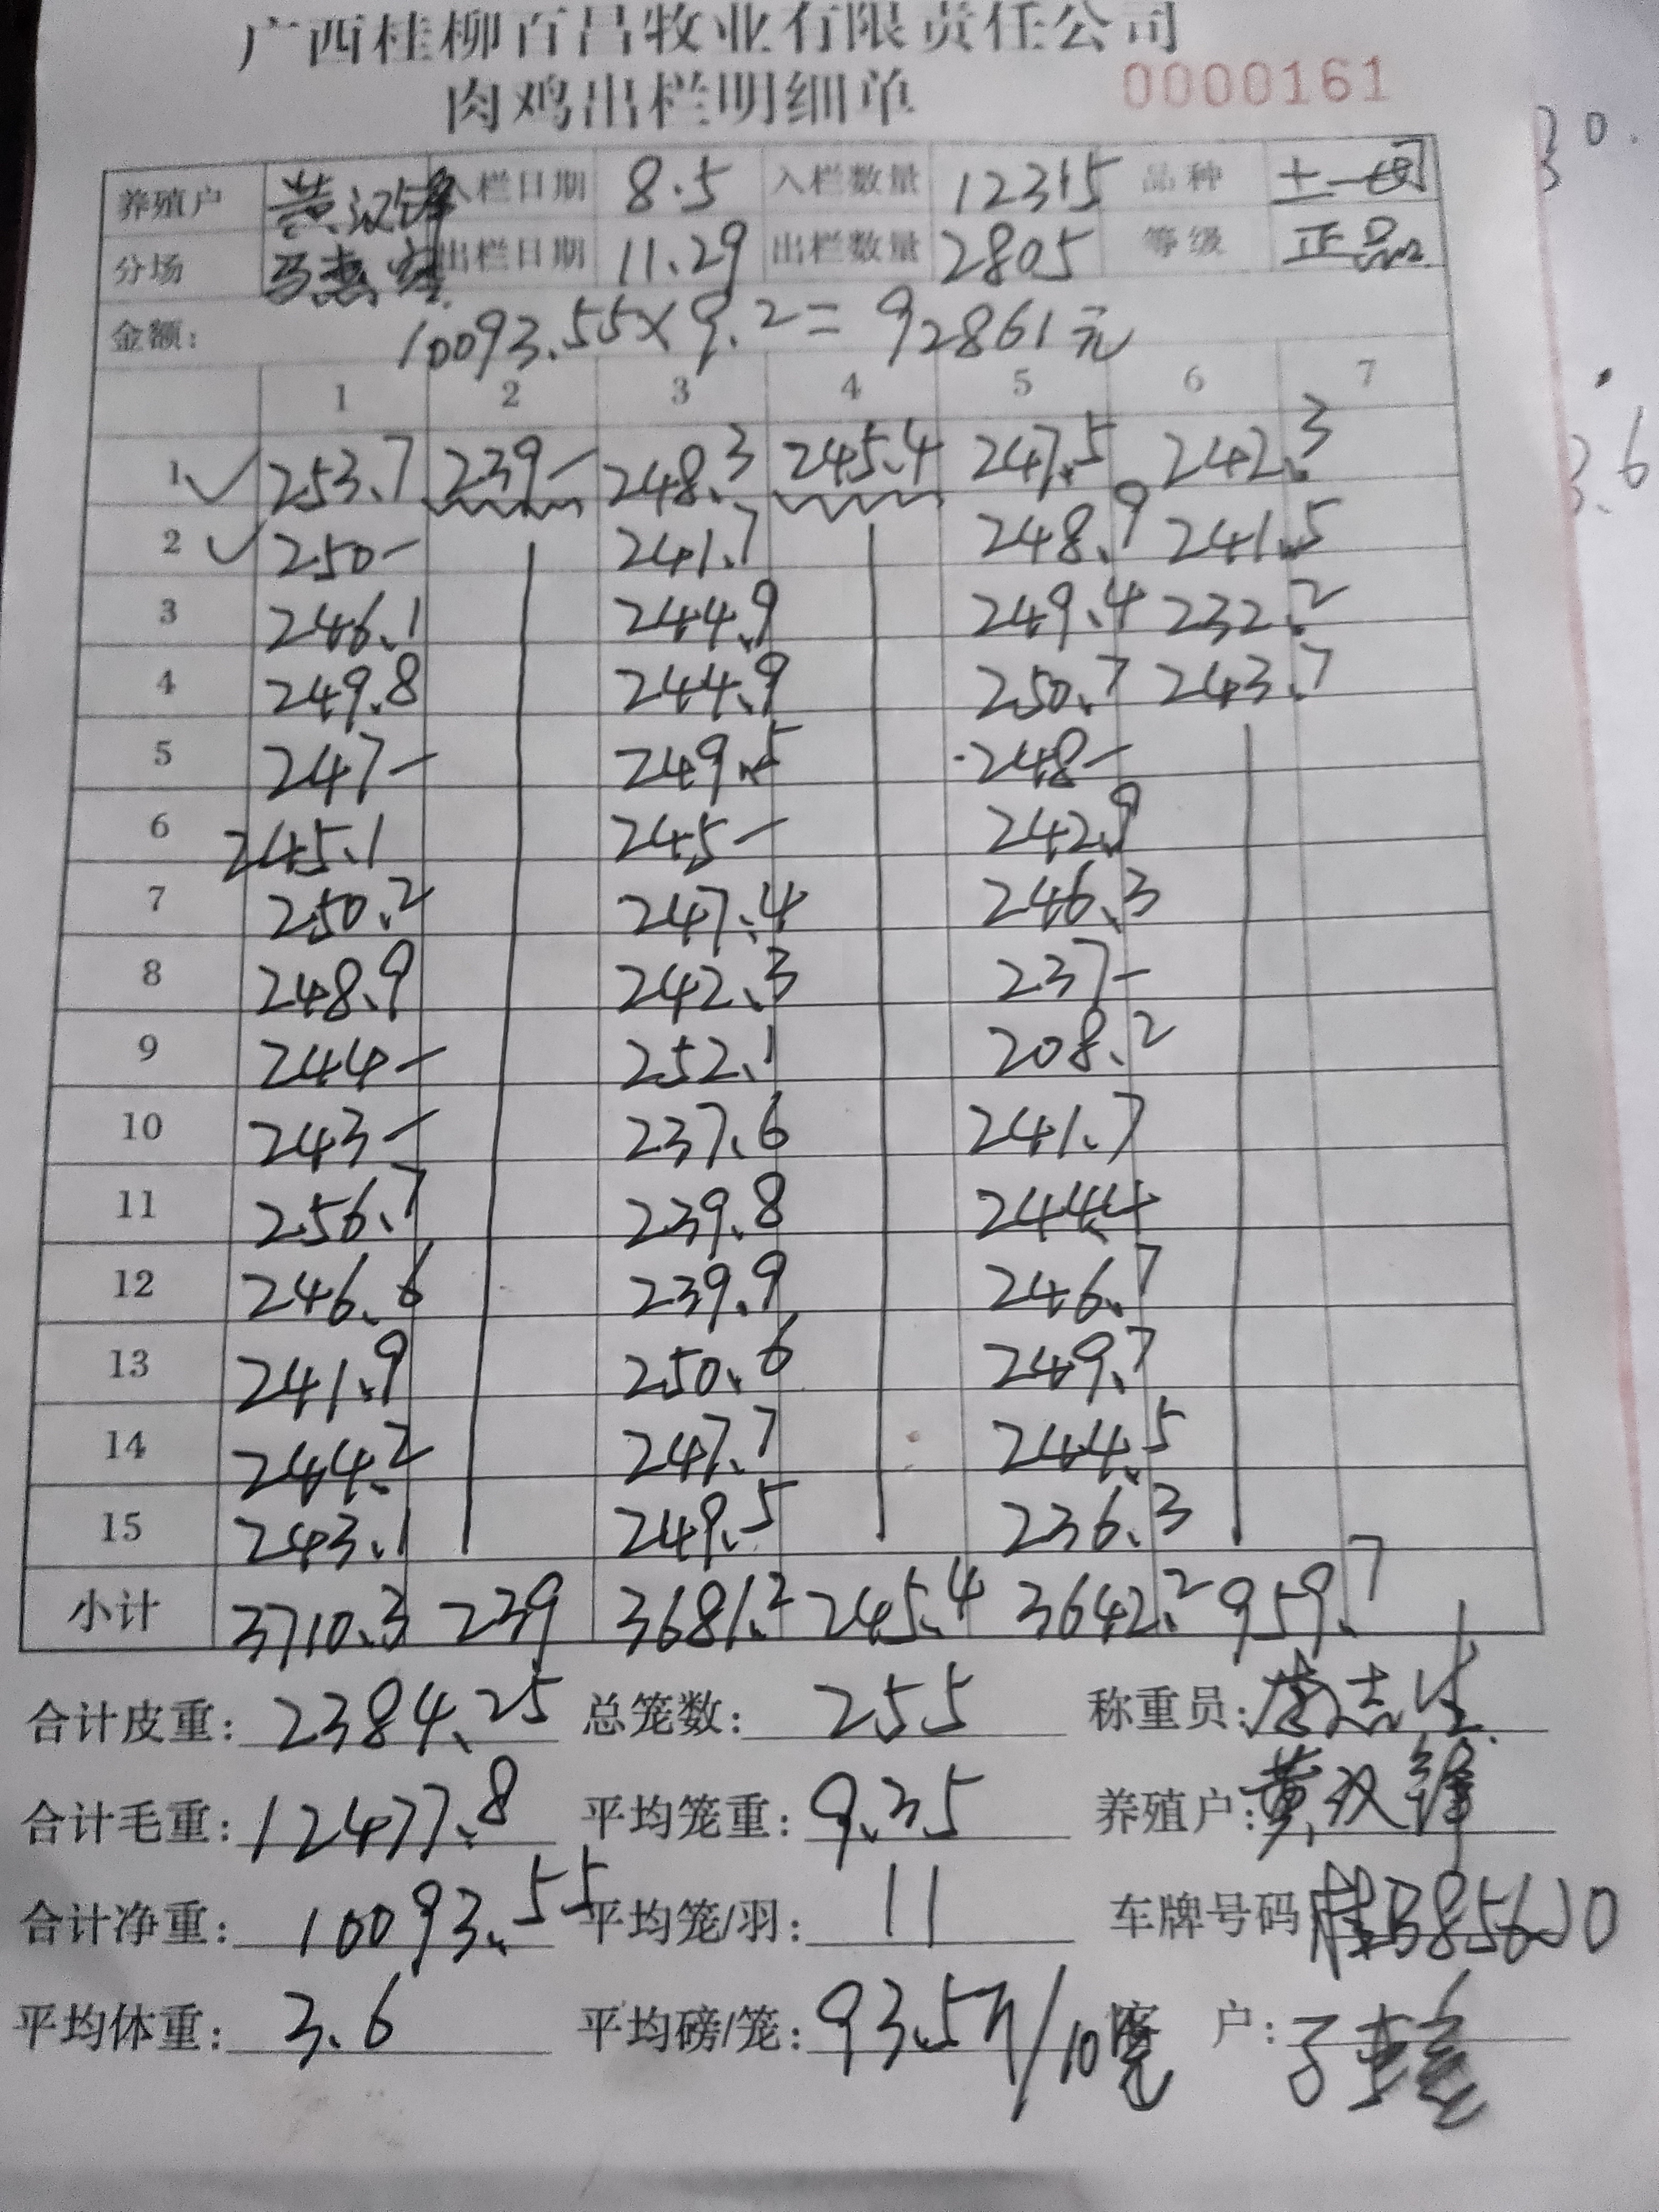 广西桂柳百昌牧业有限责任公司
肉鸡出栏明细单 0000161
养殖户 黄汉锋 入栏日期 8.5 入栏数量 12315 品种 土一
分场 出栏日期 11.29 出栏数量 2805 等级 正品
金额: 10093.55×9.2=92861元
1 2 3 4 5 6 7
1 253.7 239- 248.3 245.4 247.5 242.3
2 250- 241.7 248.9 241.5
3 246.1 244.9 249.4 232.2
4 249.8 244.9 250.7 243.7
5 247- 249.5 248-
6 245.1 245- 242.9
7 250.2 247.4 246.3
8 248.9 242.3 237-
9 244- 252.1 208.2
10 243- 237.6 241.7
11 256.7 239.8 244.4
12 246.6 239.9 246.7
13 241.9 250.6 249.7
14 244.2 247.7 244.5
15 243.1 249.5 236.3
小计 3710.3 239 3681.2 245.4 3642.2 959.7
合计皮重: 2384.25 总笼数: 255 称重员:
合计毛重: 12477.8 平均笼重: 9.35 养殖户: 黄汉锋
合计净重: 10093.55 平均笼/羽: 11 车牌号码 桂B856J0
平均体重: 3.6 平均磅/笼: 93.5斤/10笼 客户: